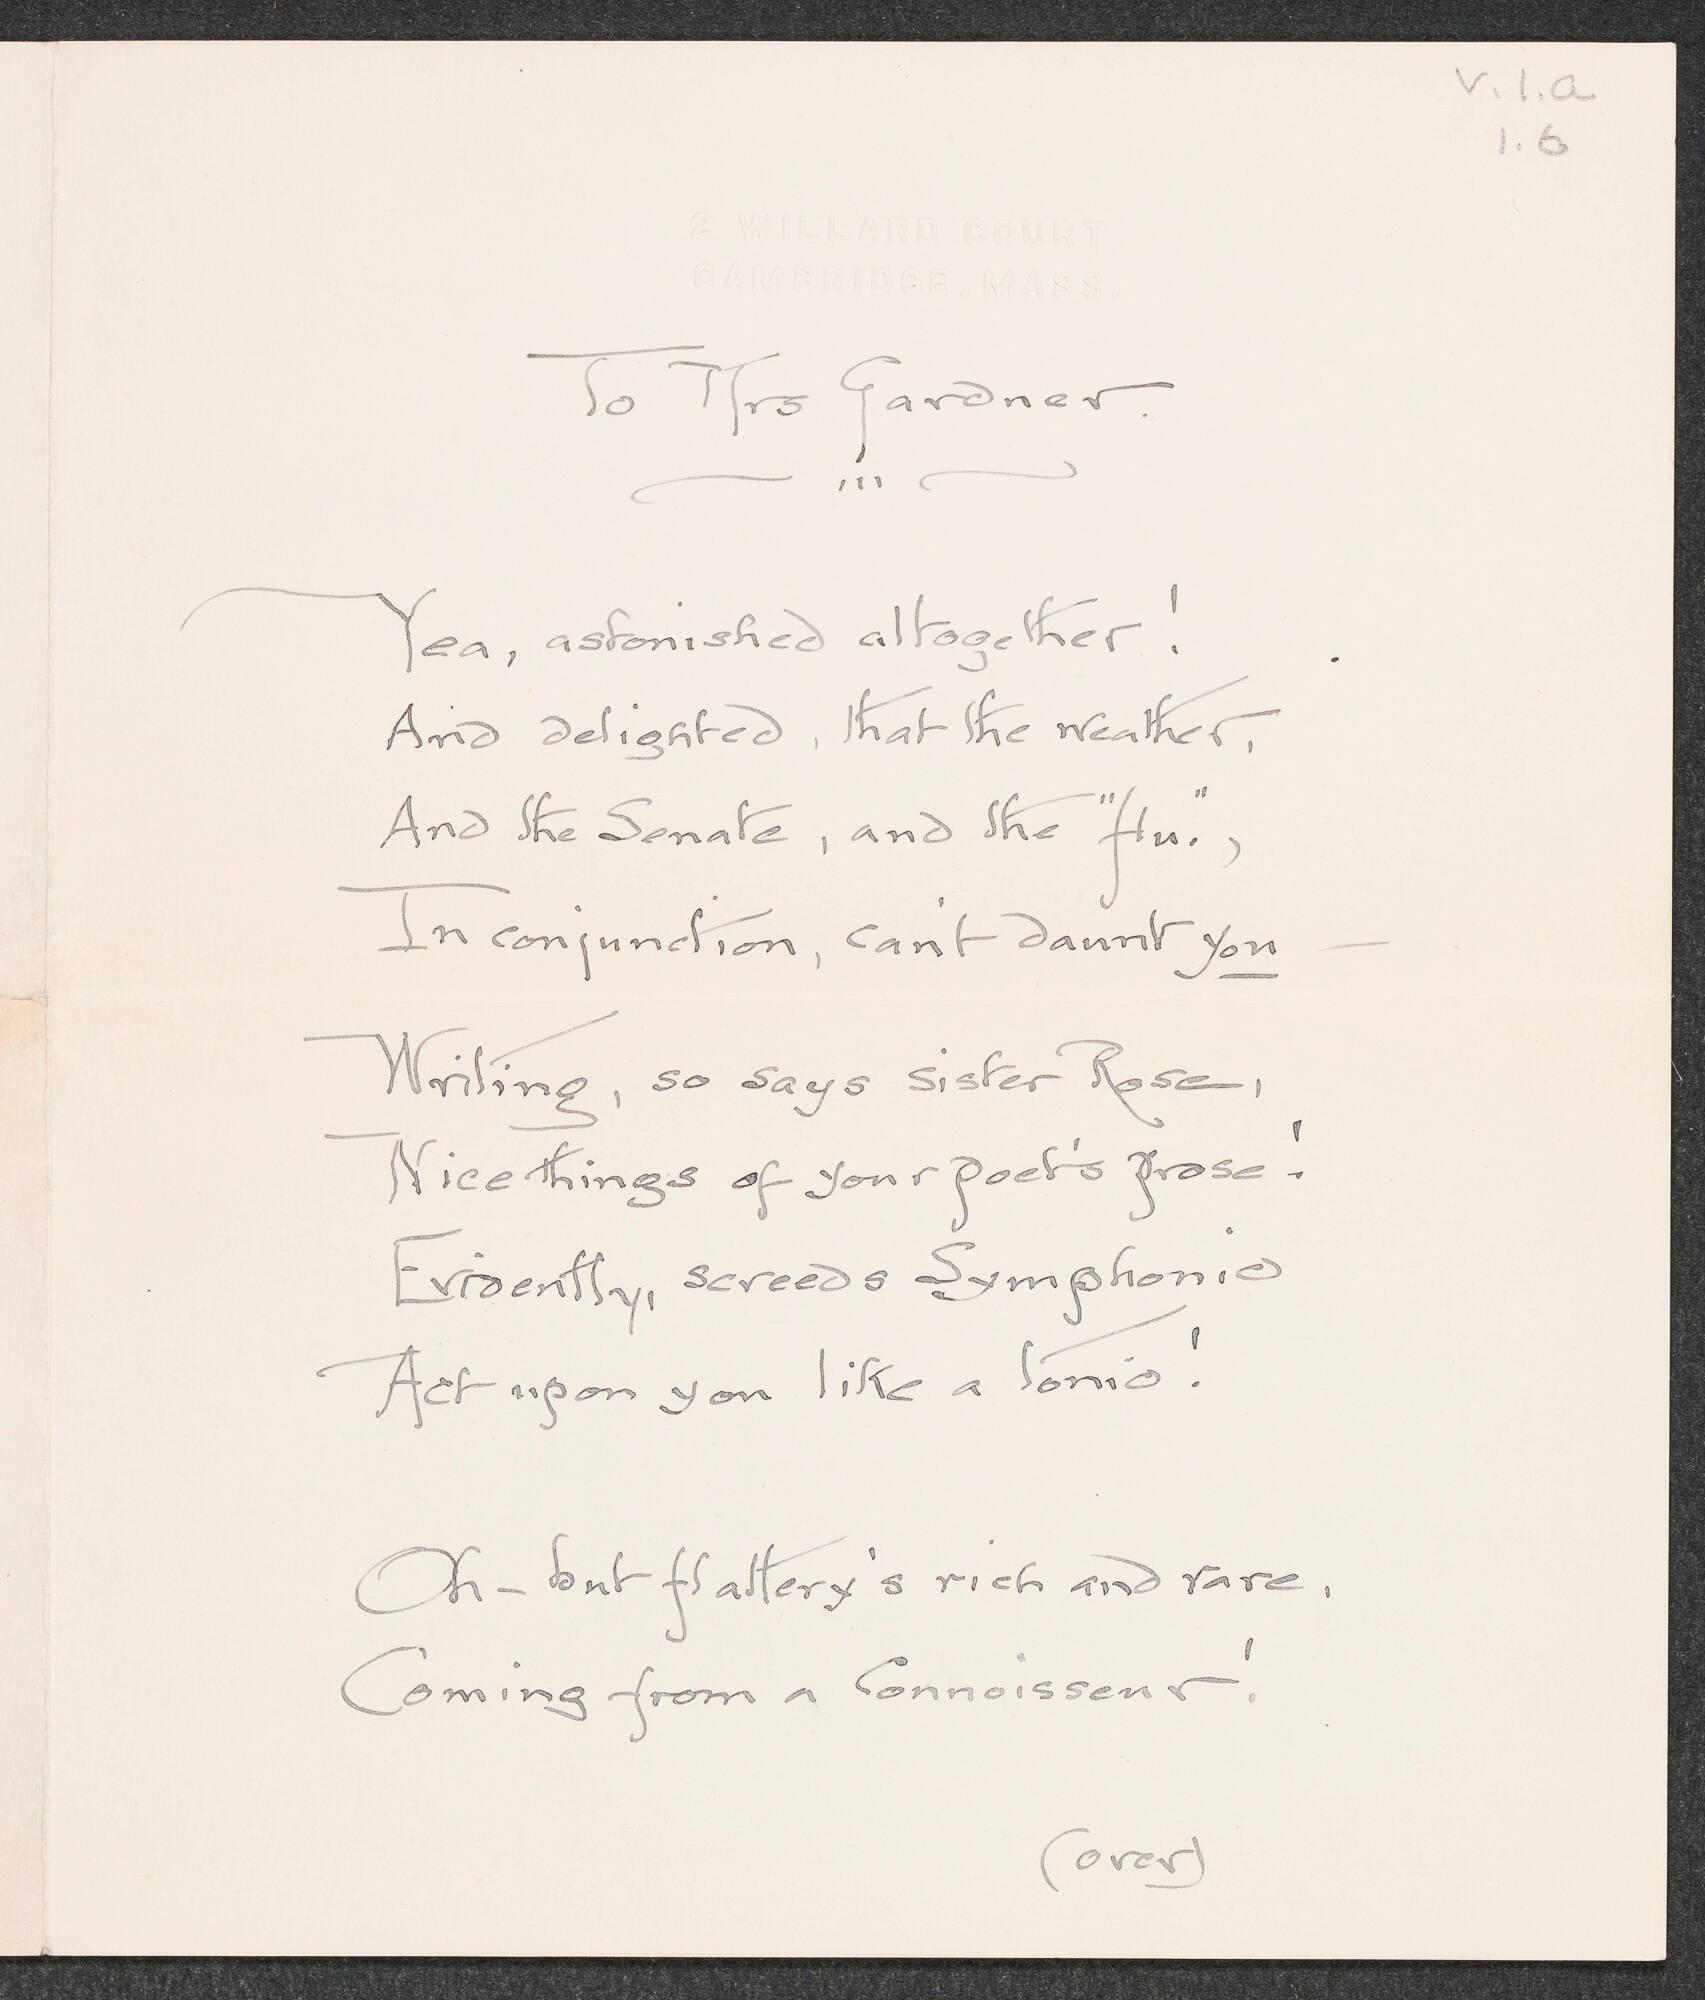 V.1.a
1.6
2 WILLARD COURT
CAMBRIDGE, MASS.
To Mrs Gardner.
Yea, astonished altogether!
And delighted, that the weather,
And the Senate, and the "flu.",
In conjunction, can't daunt you —
Writing, so says sister Rose,
Nice things of your poet's prose!
Evidently, screeds Symphonic
Act upon you like a tonic!
Oh – but flattery's rich and rare,
Coming from a Connoisseur!
(over)